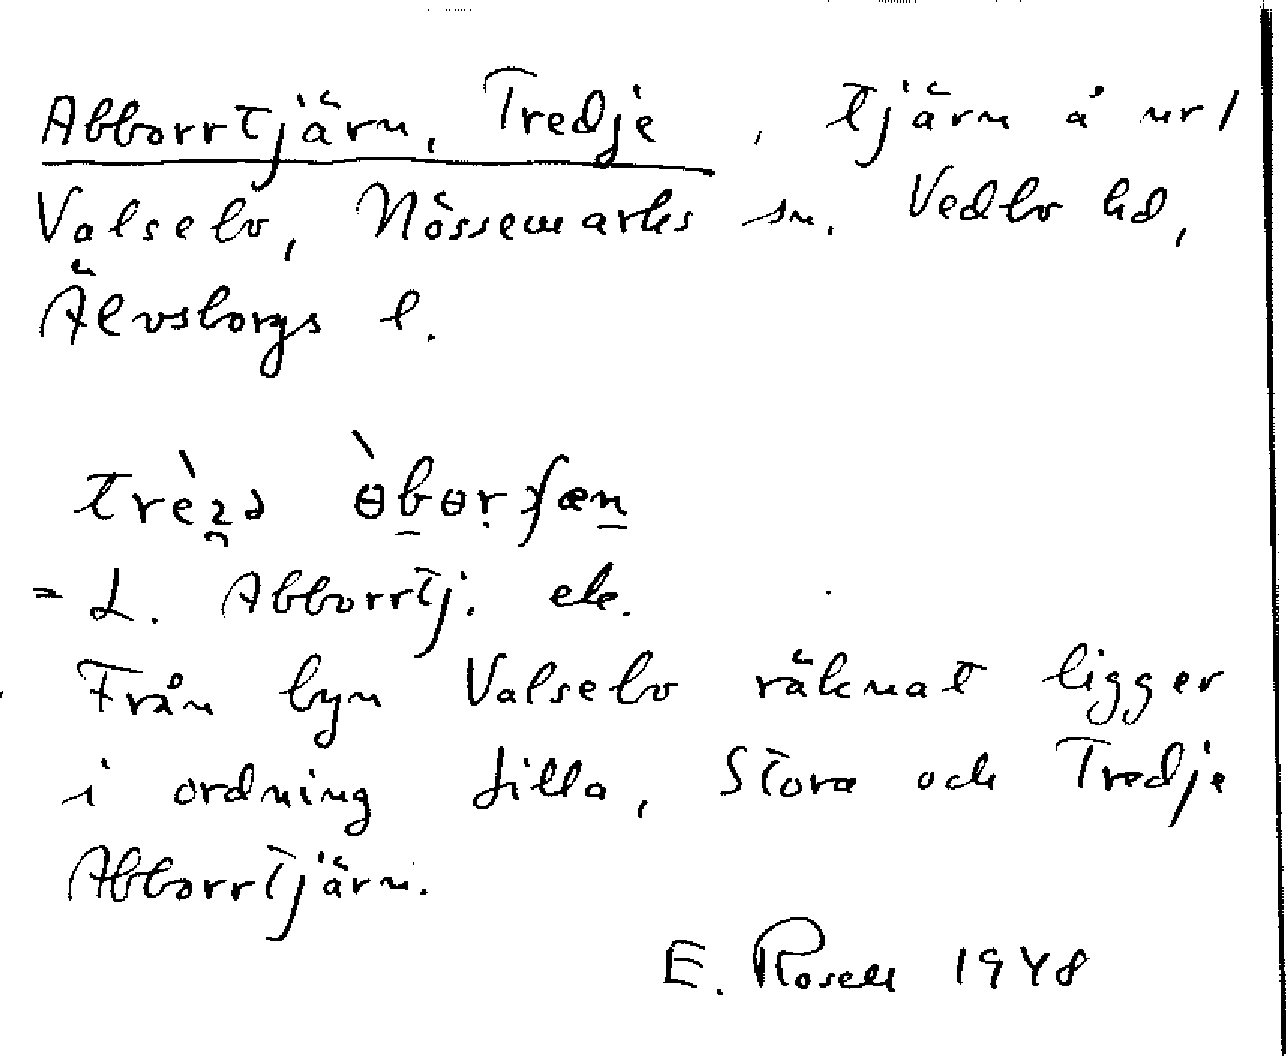 Abborrtjärn, Tredje, tjärn å nr 1
Valsebo, Nössemarks sn. Vedbo hd,
Älvsborgs l.
= L. Abborrtj. ek.
Från byn Valsebo räknat ligger
i ordning Lilla, Stora och Tredje
Abborrtjärn.
E. Rosell 1948